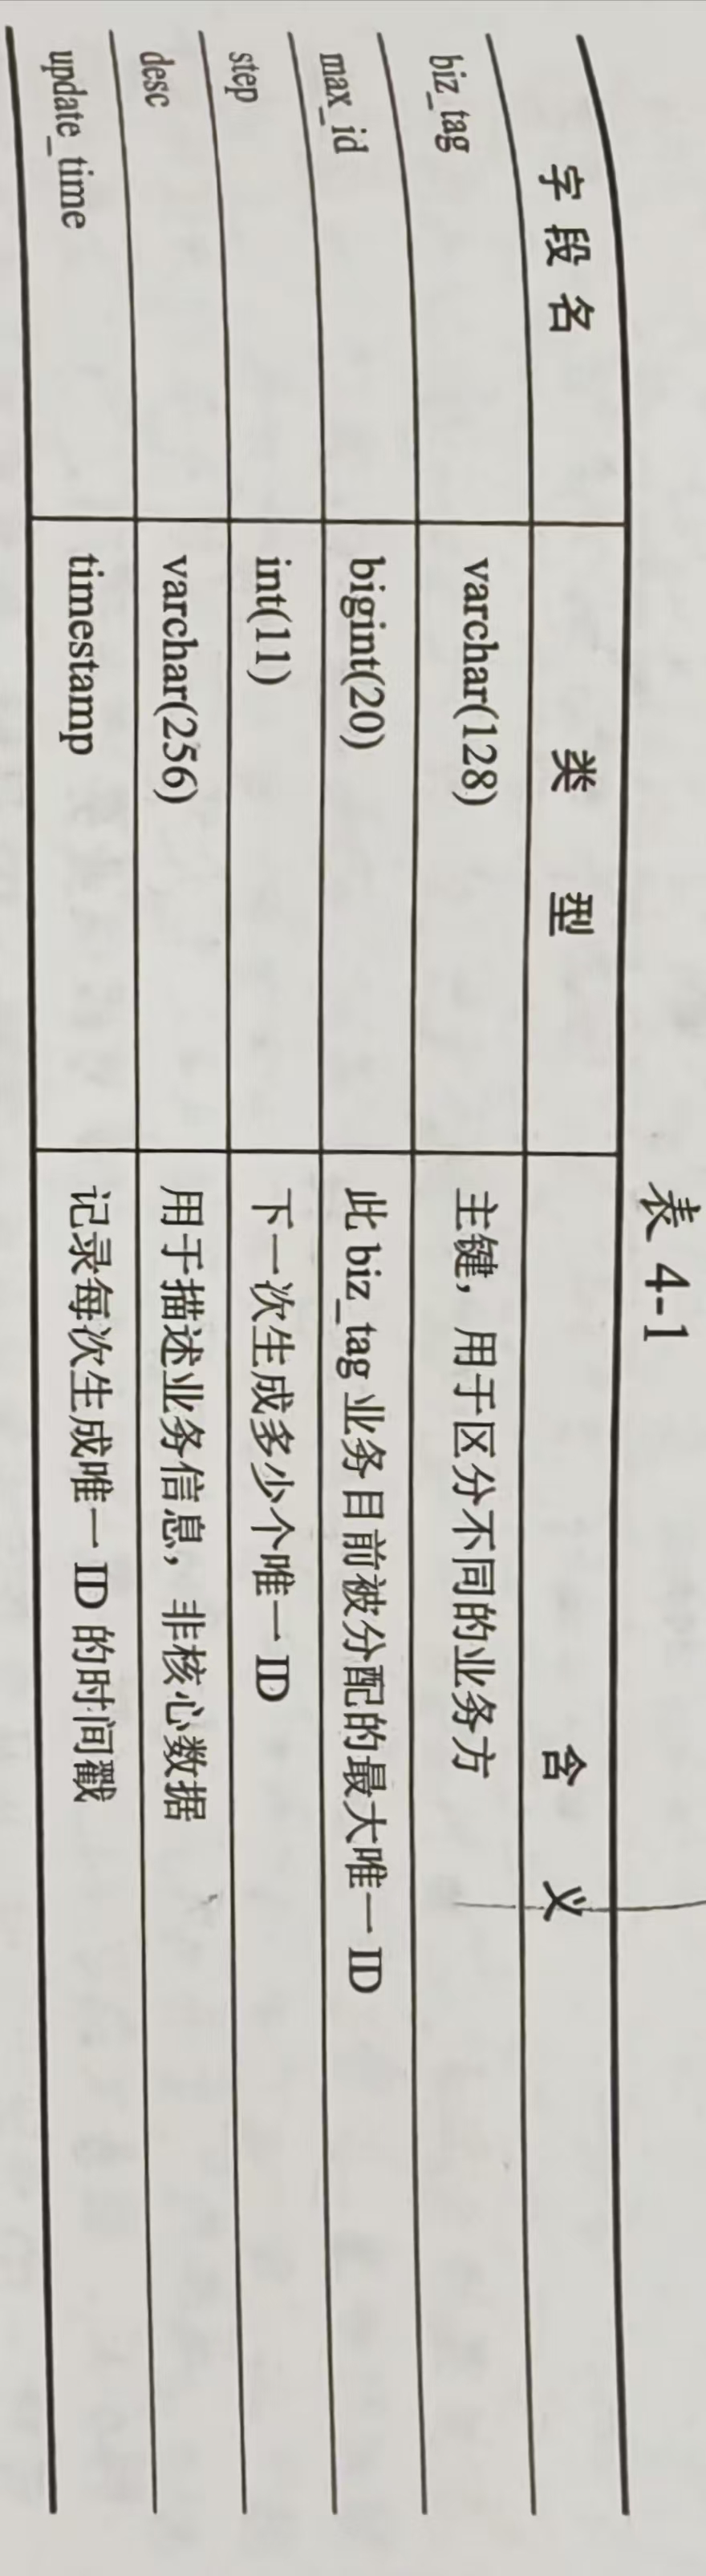 表 4-1
字 段 名 类 型 含 义
biz_tag varchar(128) 主键，用于区分不同的业务方
max_id bigint(20) 此 biz_tag 业务目前被分配的最大唯一 ID
step int(11) 下一次生成多少个唯一 ID
desc varchar(256) 用于描述业务信息，非核心数据
update_time timestamp 记录每次生成唯一 ID 的时间戳